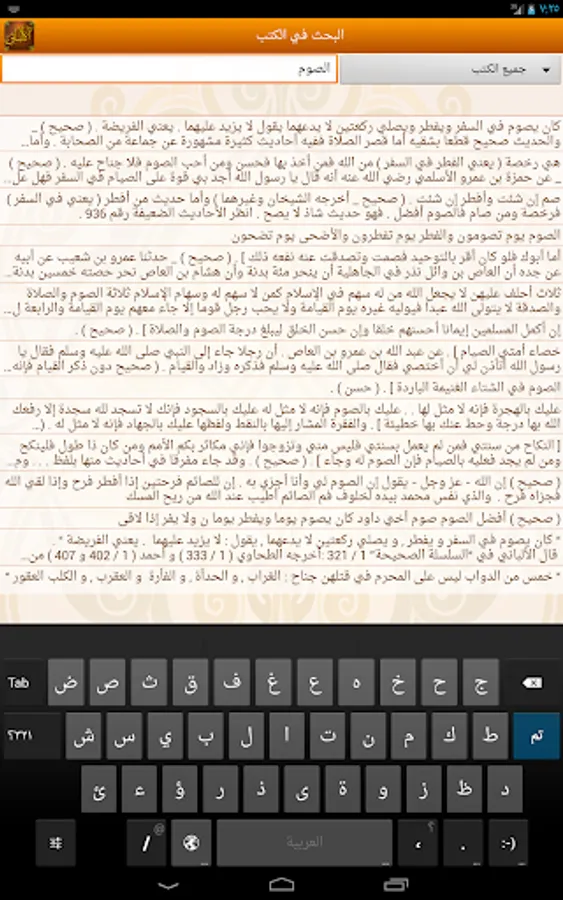 ٧:٢٥
البحث في الكتب
جميع الكتب
الصوم
كان يصوم في السفر ويفطر ويصلي ركعتين لا يدعهما يقول لا يزيد عليهما . يعني الفريضة . ( صحيح ) _
والحديث صحيح قطعا بشقيه أما قصر الصلاة ففيه أحاديث كثيرة مشهورة عن جماعة من الصحابة . وأما..
هي رخصة ( يعني الفطر في السفر ) من الله فمن أخذ بها فحسن ومن أحب الصوم فلا جناح عليه . ( صحيح )
_ عن حمزة بن عمرو الأسلمي رضي الله عنه أنه قال يا رسول الله أجد بي قوة على الصيام في السفر فهل عل..
صم إن شئت وأفطر إن شئت . ( صحيح _ أخرجه الشيخان وغيرهما ) وأما حديث من أفطر ( يعني في السفر )
فرخصة ومن صام فالصوم أفضل . فهو حديث شاذ لا يصح . انظر الأحاديث الضعيفة رقم 936 .
الصوم يوم تصومون والفطر يوم تفطرون والأضحى يوم تضحون
أما أبوك فلو كان أقر بالتوحيد فصمت وتصدقت عنه نفعه ذلك ] . ( صحيح ) _ حدثنا عمرو بن شعيب عن أبيه
عن جده أن العاص بن وائل نذر في الجاهلية أن ينحر مئة بدنة وأن هشام بن العاص نحر حصته خمسين بدنة..
ثلاث أحلف عليهن لا يجعل الله من له سهم في الإسلام كمن لا سهم له وسهام الإسلام ثلاثة الصوم والصلاة
والصدقة لا يتولى الله عبدا فيوليه غيره يوم القيامة ولا يحب رجل قوما إلا جاء معهم يوم القيامة والرابعة ل..
إن أكمل المسلمين إيمانا أحسنهم خلقا وإن حسن الخلق ليبلغ درجة الصوم والصلاة ] . ( صحيح ) .
خصاء أمتي الصيام ] . عن عبد الله بن عمرو بن العاص . أن رجلا جاء إلى النبي صلى الله عليه وسلم فقال يا
رسول الله أتأذن لي أن أختصي فقال صلى الله عليه وسلم فذكره وزاد والقيام . ( صحيح دون ذكر القيام فإنه..
الصوم في الشتاء الغنيمة الباردة ] . ( حسن ) .
عليك بالهجرة فإنه لا مثل لها . . عليك بالصوم فإنه لا مثل له عليك بالسجود فإنك لا تسجد لله سجدة إلا رفعك
الله بها درجة وحط عنك بها خطيئة ] . والفقرة المشار إليها بالنقط ولفظها عليك بالجهاد فإنه لا مثل له . (..
[ النكاح من سنتي فمن لم يعمل بسنتي فليس مني وتزوجوا فإني مكاثر بكم الأمم ومن كان ذا طول فلينكح
ومن لم يجد فعليه بالصيام فإن الصوم له وجاء ] . ( صحيح ) . وقد جاء مفرقا في أحاديث منها بلفظ . . . وم..
( صحيح ) إن الله - عز وجل - يقول إن الصوم لي وأنا أجزي به . إن للصائم فرحتين إذا أفطر فرح وإذا لقي الله
فجزاه فرح . والذي نفس محمد بيده لخلوف فم الصائم أطيب عند الله من ريح المسك
( صحيح ) أفضل الصوم صوم أخي داود كان يصوم يوما ويفطر يوما ن ولا يفر إذا لاقى
" كان يصوم في السفر و يفطر , و يصلي ركعتين لا يدعهما , يقول : لا يزيد عليهما . يعني الفريضة " .
قال الألباني في "السلسلة الصحيحة" 1 / 321 :أخرجه الطحاوي ( 1 / 333 ) و أحمد ( 1 / 402 و 407 ) من..
" خمس من الدواب ليس على المحرم في قتلهن جناح : الغراب , و الحدأة , و الفأرة و العقرب , و الكلب العقور "
Tab ض ص ث ق ف غ ع ه خ ح ج
؟٣٢١ ش س ي ب ل ا ت ن م ك ط تم
ئ ء ؤ ر ذ ى ة و ز ظ د
/ @ العربية ، ؟ . :-)